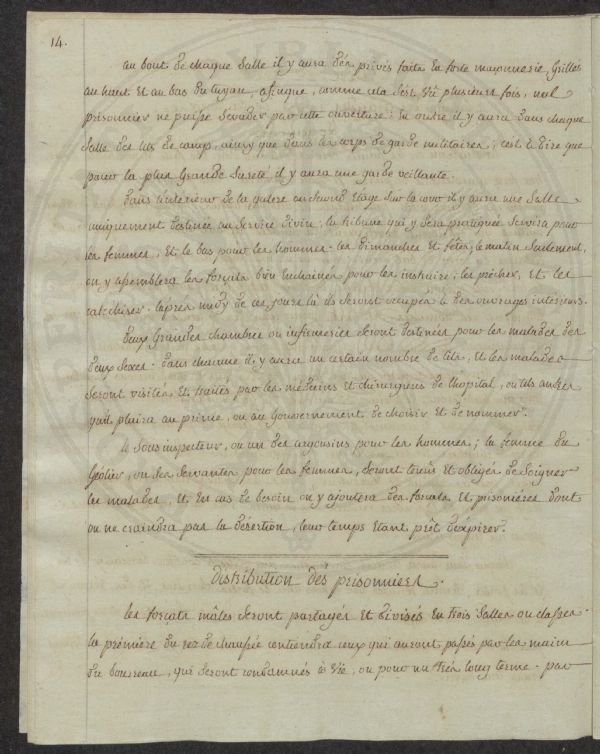 14.
au bout de chaque Salle il y aura des privés faits en forte maçonnerie, Grillés
au haut et au bas du tuyau, afinque, comme cela s'est vû plusieurs fois, nul
prisonnier ne puisse s'évader par cette ouverture. En outre il y aura dans chaque
Salle des lits de camp, ainsy que dans les corps de garde militaires; c'est à dire que
pour la plus Grande Sureté il y aura une garde veillante.
Dans l'interieur de la galere au second Etage sur la cour il y aura une Salle
uniquement destinée au Service divin, la tribune qui y sera pratiquée servira pour
les femmes, Et le bas pour les hommes. les dimanches et fêtes, le matin seulement,
on y assemblera les forçats bien Enchainés pour les instruire, les prêcher, Et les
catechiser. l'après midy de ces jours là ils seront occupés à des ouvrages interieurs.
Deux Grandes chambres ou infirmeries seront destinées pour les malades des
deux sexes. dans chacune il y aura un certain nombre de lits, et les malades
seront visités Et traités par les medecins Et chirurgiens de l'hopital, ou tels autres
qu'il plaira au prince, ou au Gouvernement de choisir Et de nommer.
le sous inspecteur, ou un des argousins pour les hommes; la femme du
Geolier, ou ses servantes pour les femmes, seront tenus et obligés de soigner
les malades, Et En cas de besoin on y ajoutera des forçats Et prisonieres dont
on ne craindra pas la désertion, leur temps Etant prêt d'expirer.
distribution dés prisonniers.
les forçats mâles seront partagés Et divisés En trois Salles ou classes.
la prémiere du rez de chaussée contiendra ceux qui auront passés par les mains
du bourreau, qui seront condamnés à vie, ou pour un très long terme. par